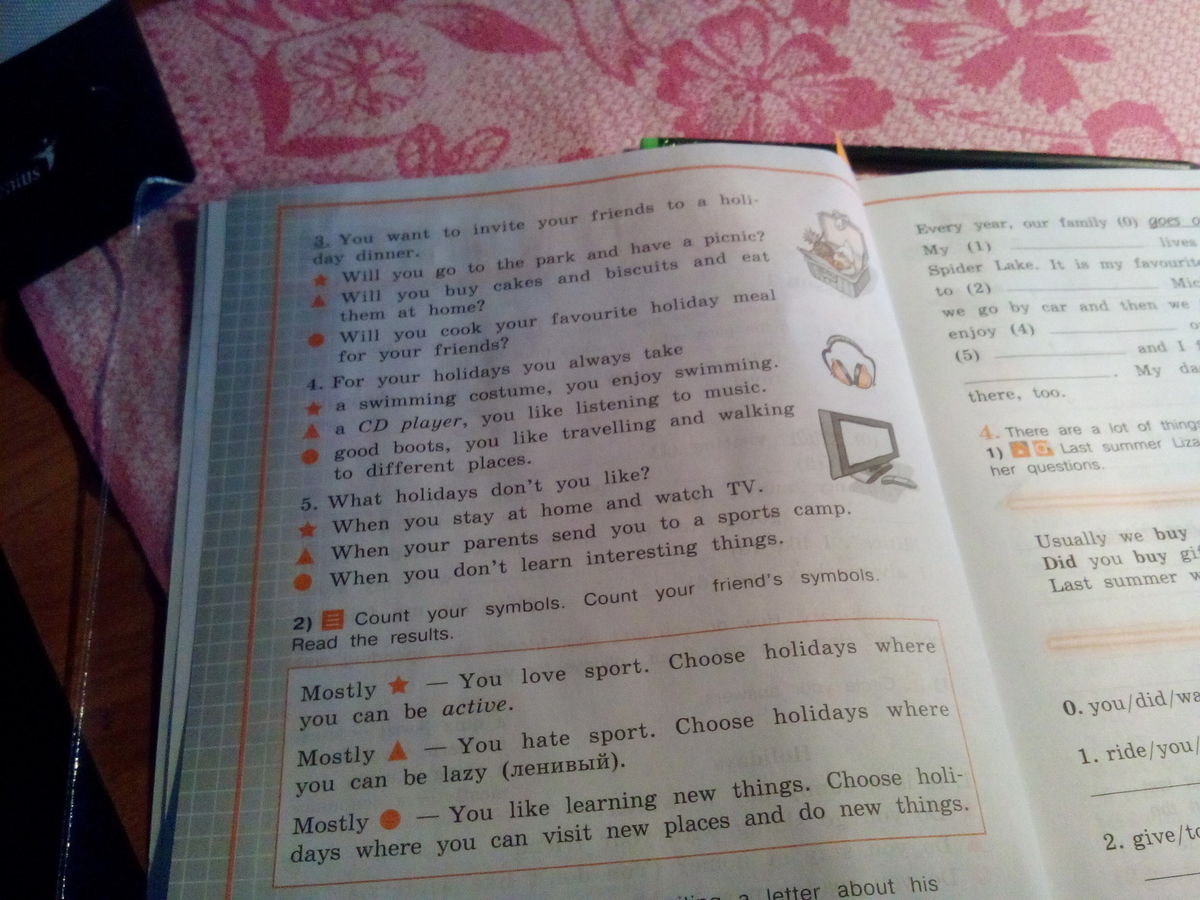 3. You want to invite your friends to a holi-
day dinner.
Will you go to the park and have a picnic?
Will you buy cakes and biscuits and eat
them at home?
Will you cook your favourite holiday meal
for your friends?
4. For your holidays you always take
a swimming costume, you enjoy swimming.
a CD player, you like listening to music.
good boots, you like travelling and walking
to different places.
5. What holidays don't you like?
When you stay at home and watch TV.
When your parents send you to a sports camp.
When you don't learn interesting things.
2) Count your symbols. Count your friend's symbols.
Read the results.
Mostly — You love sport. Choose holidays where
you can be active.
Mostly — You hate sport. Choose holidays where
you can be lazy (ленивый).
Mostly — You like learning new things. Choose holi-
days where you can visit new places and do new things.
a letter about his
Every year, our family (0) goes
My (1) lives
Spider Lake. It is my favourite
to (2)
we go by car and then we
enjoy (4)
(5) and I
. My
there, too.
4. There are a lot of things
1) Last summer Liza
her questions.
Usually we buy
Did you buy
Last summer
0. you/did/
1. ride/you/
2. give/